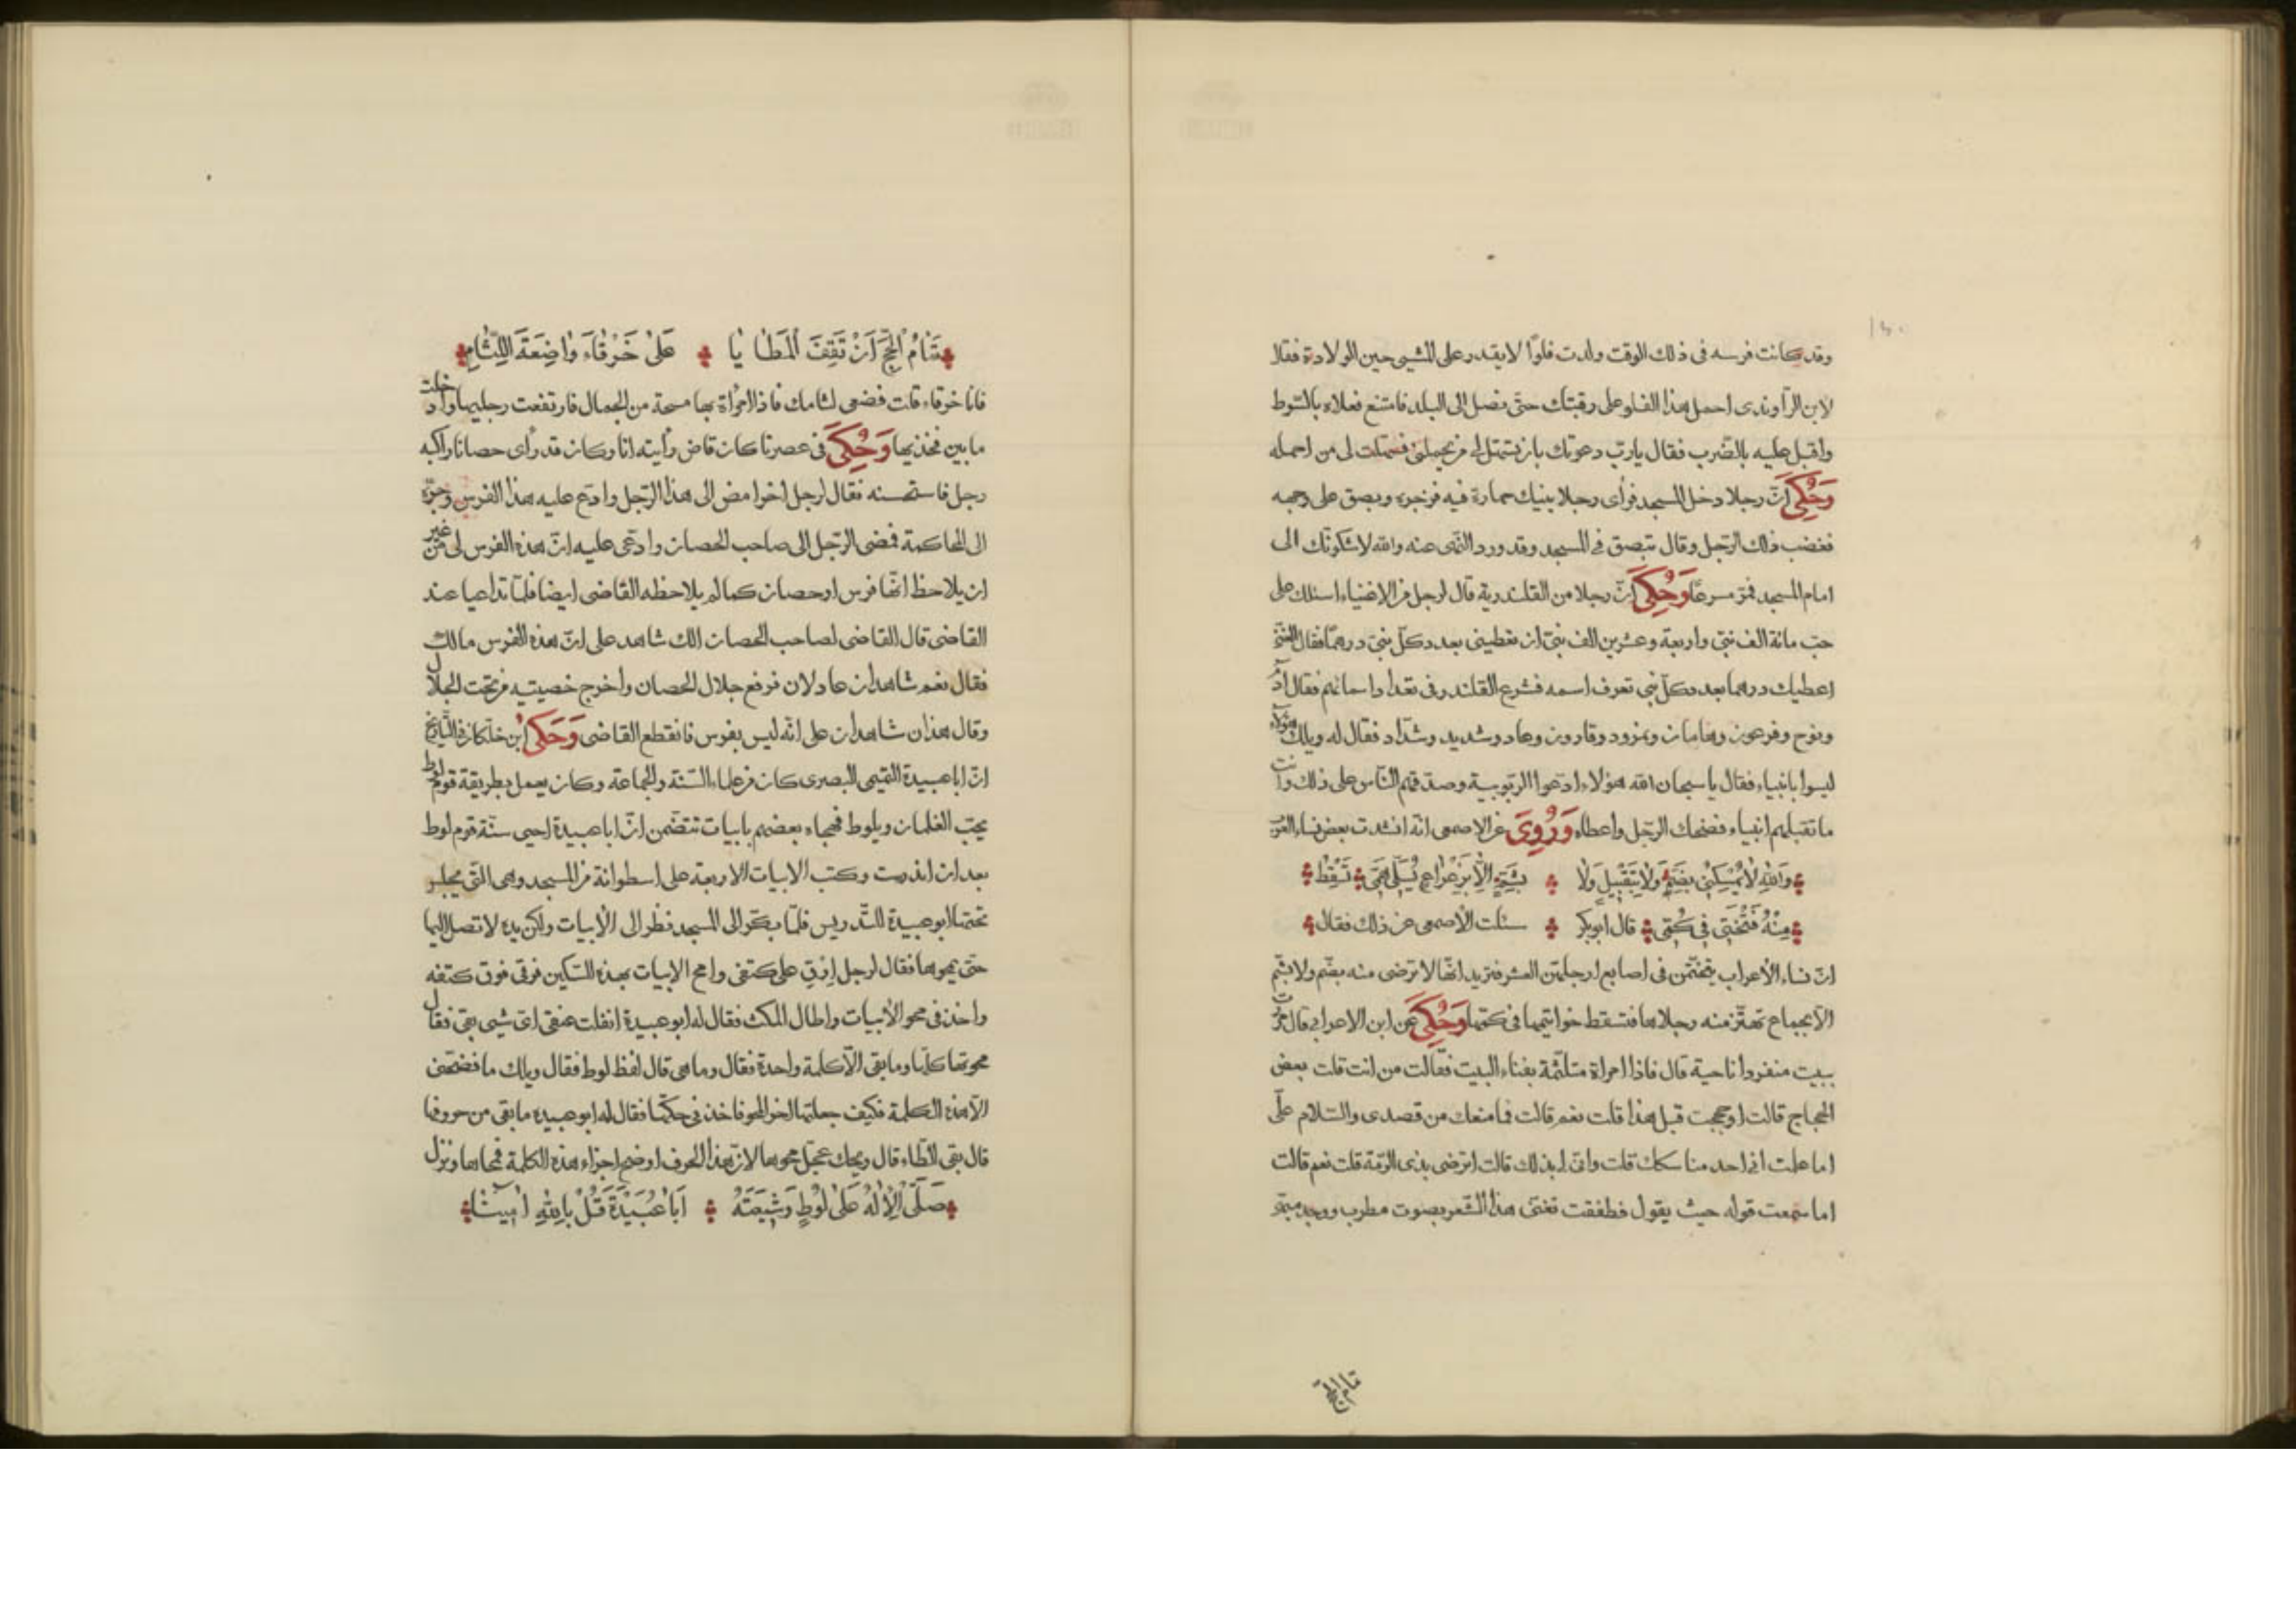 وقد كانت فرسه فى ذلك الوقت ولدت فلوّا لا يقدر على المشى حين الولادة فقال
لابن الرّاوندى احمل هذا الفلو على رقبتك حتّى نصل الى البلد فامتنع فعلاه بالسّوط
واقبل عليه بالضّرب فقال يا ربّ دعوتك بان تشمّل لى من يحملنى فشملت لى من احمله
وَحُكِىَ انّ رجلا دخل المسجد فرأى رجلا ينيك حمارة فيه فزجره وبصق على وجهه
فغضب ذلك الرّجل وقال تبصق فى المسجد وقد ورد النّهى عنه والله لاشكونّك الى
امام المسجد فمرّ مسرعًا وَحُكِىَ انّ رجلا من القلندرية قال لرجل من الاغنياء اسئلك على
حبّ مائة الف نبىّ واربعة وعشرين الف نبىّ ان تعطينى بعدد كلّ نبىّ درهمًا فقال الغنىّ
اعطيك درهما بعدد كلّ نبى تعرف اسمه فشرع القلندر فى تعداد اسمائهم فقال آدم
ونوح وفرعون وهامان ونمرود وقارون وعاد وشديد وشدّاد فقال له ويلك هؤلاء
ليسوا بانبياء فقال يا سبحان الله هؤلاء ادعوا الربّوبية وصدقهم النّاس على ذلك وانت
ما تقبلهم انبياء فضحك الرجل واعطاه وَرُوِىَ عن الاصمعى انّه انشدت بعض نساء العرب
وَاللّٰهِ لَا يُمْسِكُنِى بِضَمٍّ وَلَا تَقْبِيلٍ وَلَا بِشَمٍّ اِلَّا بِزِعْزاعٍ يُسَلِّى هَمِّى تَسْقُطُ
مِنْهُ فَتْخَتِى فِى كُمِّى قال ابوبكر سئلت الاصمعى عن ذلك فقال
انّ نساء الاعراب يتختّمن فى اصابع ارجلهنّ العشر فتريد انّها لا ترضى منه بضمّ ولا بشمّ
الّا بجماع تهتزّ منه رجلاها فتسقط خواتيمها فى كمّها وَحُكِىَ عن ابن الاعرابى قال مررت
ببيت منفردا ناحية قال فاذا امراة متلثّمة بفناء البيت فقالت من انت قلت بعض
الحجاج قالت اوحججت قبل هذا قلت نعم قالت فما منعك من قصدى والسّلام علىّ
اما علمت انى احد مناسكك قلت وانّى لى بذلك قالت اترضى بذى الرّمّة قلت نعم قالت
اما سمعت قوله حيث يقول فطفقت تغنّى هذا الشّعر بصوت مطرب
تمام الحجّ
تَمَامُ الْحَجِّ اَنْ تَقِفَ الْمَطَايَا عَلَىٰ خَرْقَاءَ وَاضِعَةَ اللِّثَامِ
فانا خرقاء قلت فضعى لثامك فاذا امرأة بها مسحة من الجمال فارتفعت رجليها وادخلت
ما بين فخذيها وَحُكِىَ فى عصرنا كان قاض رأيته انا وكان قد رأى حصانا راكبه
رجل فاستحسنه فقال لرجل اخر امض الى هذا الرّجل وادّع عليه هذا الفرس وجرّه
الى المحاكمة فمضى الرّجل الى صاحب الحصان وادّعى عليه انّ هذه الفرس لى من غير
ان يلاحظ انّها فرس او حصان كما لم يلاحظه القاضى ايضا فلمّا تداعيا عند
القاضى قال القاضى لصاحب الحصان الك شاهد على انّ هذه الفرس مالك
فقال نعم شاهدان عادلان فرفع جلال الحصان واخرج خصيتيه من تحت الجلال
وقال هذان شاهدان على انّه ليس بفرس فانقطع القاضى وَحَكَىٰ ابن خلّكان فى التّاريخ
انّ ابا عبيدة التّيمى البصرى كان من علماء السّنّة والجماعة وكان يعمل بطريقة قوم لوط
يحبّ الغلمان ويلوط فهجاه بعضهم بابيات تتضمّن انّ ابا عبيدة احيى سنّة قوم لوط
بعد ان اندرست وكتب الابيات الاربعة على اسطوانة من المسجد وهى الّتى يجلس
تحتها ابو عبيدة للتّدريس فلمّا بكّر الى المسجد نظر الى الابيات ولكن يده لا تصل اليها
حتّى يمحوها فقال لرجل ارق على كتفى وامح الابيات بهذه السّكين فرقى فوق كتفه
واخذ فى محو الابيات واطال المكث فقال له ابو عبيدة اثقلت عنقى اىّ شيى بقى فقال
محوتها كلّها وما بقى الّا كلمة واحدة فقال وما هى قال لفظ لوط فقال ويلك ما فضحنى
الّا هذه الكلمة فكيف جعلتها اخر المحو فاخذ فى حكّها فقال له ابو عبيدة ما بقى من حروفها
قال بقى الطّاء قال ويحك عجّل محوها لانّ هذا الحرف اوضح اجزاء هذه الكلمة فمحاها ونزل
صَلَّى الْاِلٰهُ عَلَىٰ لُوْطٍ وَشِيْعَتِهِ اَبَا عُبَيْدَةَ قُلْ بِاللّٰهِ اٰمِيْنَا